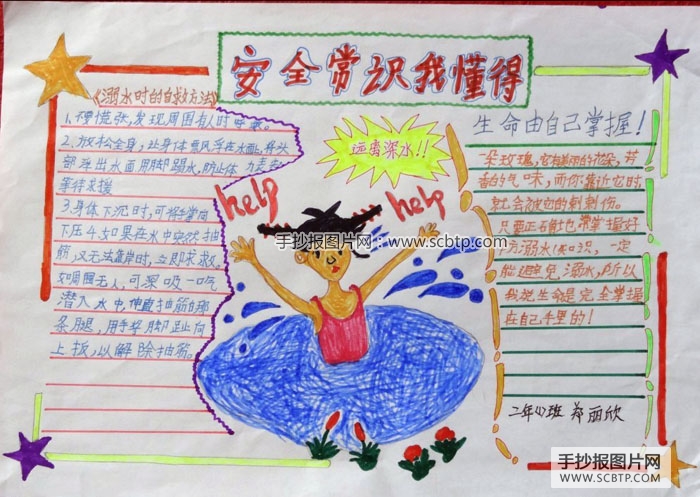 安全常识我懂得
《溺水时的自救方法》
1.不要慌张,发现周围有人时呼救。
2.放松全身,让身体飘浮在水面上,将头
部浮出水面用脚踢水,防止体力丧失
等待求援
3.身体下沉时,可将手掌向
下压4.如果在水中突然抽
筋,又无法靠岸时,立即求救
如周围无人,可深吸一口气
潜入水中,伸直抽筋的那
条腿,用手将脚趾向
上扳,以解除抽筋。
远离深水!!
help
help
手抄报图片网 www.scbtp.com
生命由自己掌握!
一朵玫瑰,它有美丽的花朵,芳
香的气味,而你靠近它时
就会被它的刺刺伤。
只要正确
防溺水知识,一定
能避免溺水,所以
我说生命是完全掌握
在自己手里的!
二年 班 郑丽欣
手抄报图片网
WWW.SCBTP.COM